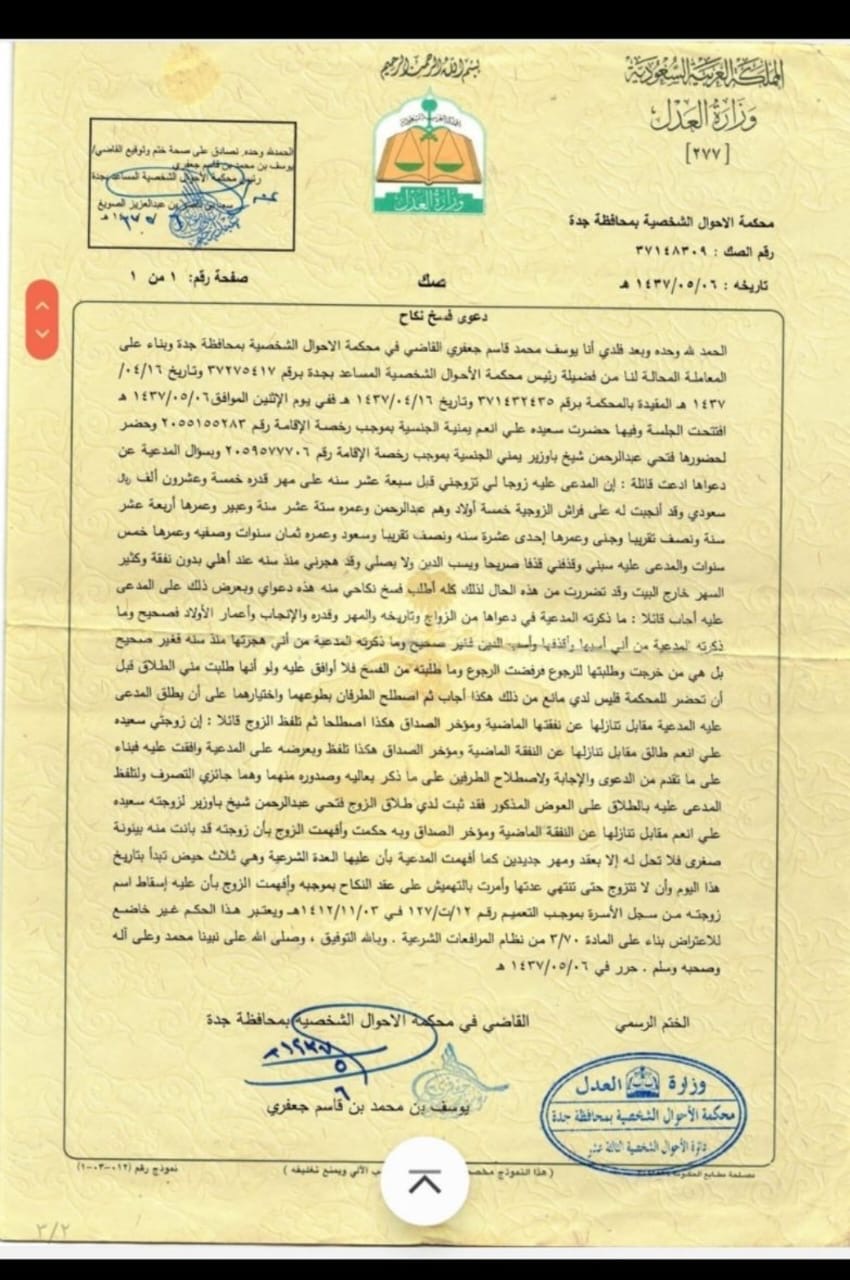 بسم الله الرحمن الرحيم
المملكة العربية السعودية
وزارة العدل
[٢٧٧]
وزارة العدل
الحمدلله وحده, نصادق على صحة ختم وتوقيع القاضي/
يوسف بن محمد بن قاسم جعفري
رئيس محكمة الأحوال الشخصية المساعد بجدة
بن عبدالعزيز الصويغ
محكمة الاحوال الشخصية بمحافظة جدة
رقم الصك : ٣٧١٤٨٣٠٩
تاريخه : ١٤٣٧/٠٥/٠٦ هـ
صك
صفحة رقم: ١ من ١
دعوى فسخ نكاح
الحمد لله وحده وبعد فلدي أنا يوسف محمد قاسم جعفري القاضي في محكمة الاحوال الشخصية بمحافظة جدة وبناء على
المعاملة المحالة لنا من فضيلة رئيس محكمة الأحوال الشخصية المساعد بجدة برقم ٣٧٢٧٥٤١٧ وتاريخ ٠٤/١٦/
١٤٣٧ هـ المقيدة بالمحكمة برقم ٣٧١٤٣٢٤٣٥ وتاريخ ١٤٣٧/٠٤/١٦ هـ ففي يوم الإثنين الموافق١٤٣٧/٠٥/٠٦ هـ
افتتحت الجلسة وفيها حضرت سعيده علي انعم يمنية الجنسية بموجب رخصة الإقامة رقم ٢٠٥٥١٥٥٢٨٣ وحضر
لحضورها فتحي عبدالرحمن شيخ باوزير يمني الجنسية بموجب رخصة الإقامة رقم ٢٠٥٩٥٧٧٧٠٦ وبسؤال المدعية عن
دعواها ادعت قائلة : إن المدعى عليه زوجا لي تزوجني قبل سبعة عشر سنه على مهر قدره خمسة وعشرون ألف ريال
سعودي وقد أنجبت له على فراش الزوجية خمسة أولاد وهم عبدالرحمن وعمره ستة عشر سنة وعبير وعمرها أربعة عشر
سنة ونصف تقريبا وجنى وعمرها إحدى عشرة سنه ونصف تقريبا وسعود وعمره ثمان سنوات وصفيه وعمرها خمس
سنوات والمدعى عليه سبني وقذفني قذفا صريحا ويسب الدين ولا يصلي وقد هجرني منذ سنه عند أهلي بدون نفقة وكثير
السهر خارج البيت وقد تضررت من هذه الحال لذلك كله أطلب فسخ نكاحي منه هذه دعواي وبعرض ذلك على المدعى
عليه أجاب قائلا : ما ذكرته المدعية في دعواها من الزواج وتاريخه والمهر وقدره والإنجاب وأعمار الأولاد فصحيح وما
ذكرته المدعية من أني أسبها وأقذفها وأسب الدين فغير صحيح وما ذكرته المدعية من أني هجرتها منذ سنه فغير صحيح
بل هي من خرجت وطلبتها للرجوع فرفضت الرجوع وما طلبته من الفسخ فلا أوافق عليه ولو أنها طلبت مني الطلاق قبل
أن تحضر للمحكمة فليس لدي مانع من ذلك هكذا أجاب ثم اصطلح الطرفان بطوعهما واختيارهما على أن يطلق المدعى
عليه المدعية مقابل تنازلها عن نفقتها الماضية ومؤخر الصداق هكذا اصطلحا ثم تلفظ الزوج قائلا : إن زوجتي سعيده
علي انعم طالق مقابل تنازلها عن النفقة الماضية ومؤخر الصداق هكذا تلفظ وبعرضه على المدعية وافقت عليه فبناء
على ما تقدم من الدعوى والإجابة ولاصطلاح الطرفين على ما ذكر بعاليه وصدوره منهما وهما جائزي التصرف ولتلفظ
المدعى عليه بالطلاق على العوض المذكور فقد ثبت لدي طلاق الزوج فتحي عبدالرحمن شيخ باوزير لزوجته سعيده
علي انعم مقابل تنازلها عن النفقة الماضية ومؤخر الصداق وبه حكمت وأفهمت الزوج بأن زوجته قد بانت منه بينونة
صغرى فلا تحل له إلا بعقد ومهر جديدين كما أفهمت المدعية بأن عليها العدة الشرعية وهي ثلاث حيض تبدأ بتاريخ
هذا اليوم وأن لا تتزوج حتى تنتهي عدتها وأمرت بالتهميش على عقد النكاح بموجبه وأفهمت الزوج بأن عليه إسقاط اسم
زوجته من سجل الأسرة بموجب التعميم رقم ١٢/ت/١٢٧ في ١٤١٢/١١/٠٣هـ ويعتبر هذا الحكم غير خاضع
للاعتراض بناء على المادة ٣/٧٠ من نظام المرافعات الشرعية . وبالله التوفيق ، وصلى الله على نبينا محمد وعلى آله
وصحبه وسلم . حرر في ١٤٣٧/٠٥/٠٦ هـ
الختم الرسمي
القاضي في محكمة الاحوال الشخصية بمحافظة جدة
يوسف بن محمد بن قاسم جعفري
وزارة العدل
محكمة الأحوال الشخصية بمحافظة جدة
دائرة الأحوال الشخصية الثالثة عشر
مصلحة مطابع الحكومة
( هذا النموذج مخصص الآلي ويمنع تغليفه )
نموذج رقم (١٢-٠٣-٠١)
٣/٢